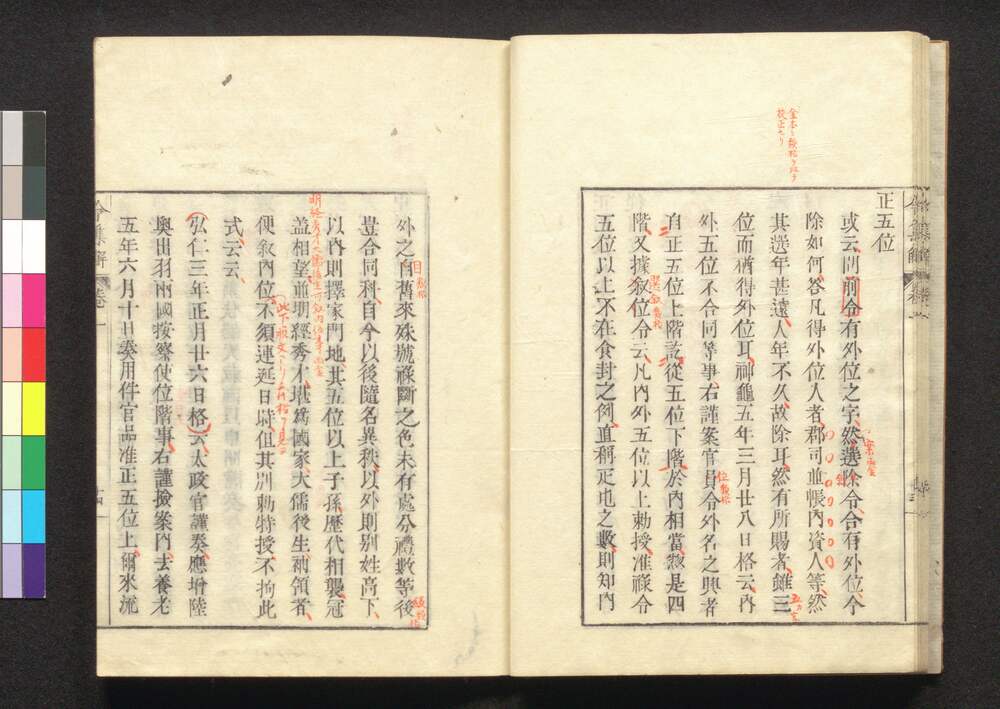 正五位
或云問前令有外位之字然選除令合有外位今
除如何答凡得外位人者郡司並帳内資人等然
其選年甚遠人年不久故除耳然有所賜者雖三
位而猶得外位耳神龜五年三月廿八日格云内
外五位不合同等事右謹案官員令外名之興者
自正五位上階訖從五位下階於内相當惣是四
階又據叙位令云凡内外五位以上勅授准祿令
五位以上不在食封之例直稱正也之數則知内
外之自舊來殊號祿斷之色未有處分禮數等後
豈合同科自今以後隨名異秩以外則別姓高下
以内則擇家門地其五位以上子孫歴代相襲冠
蓋相望並明經秀才堪爲國家大儒後生袖領者
便叙内位不須連延日時但其別勅特授不拘此
式云云
弘仁三年正月廿六日格云太政官謹奏應增陸
奥出羽兩國按察使位階事右謹撿案内去養老
五年六月十日奏用件官品准正五位上爾來流
令集解 卷一
十四